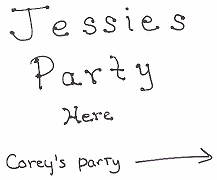 Jessies
Party
Here
Corey's party